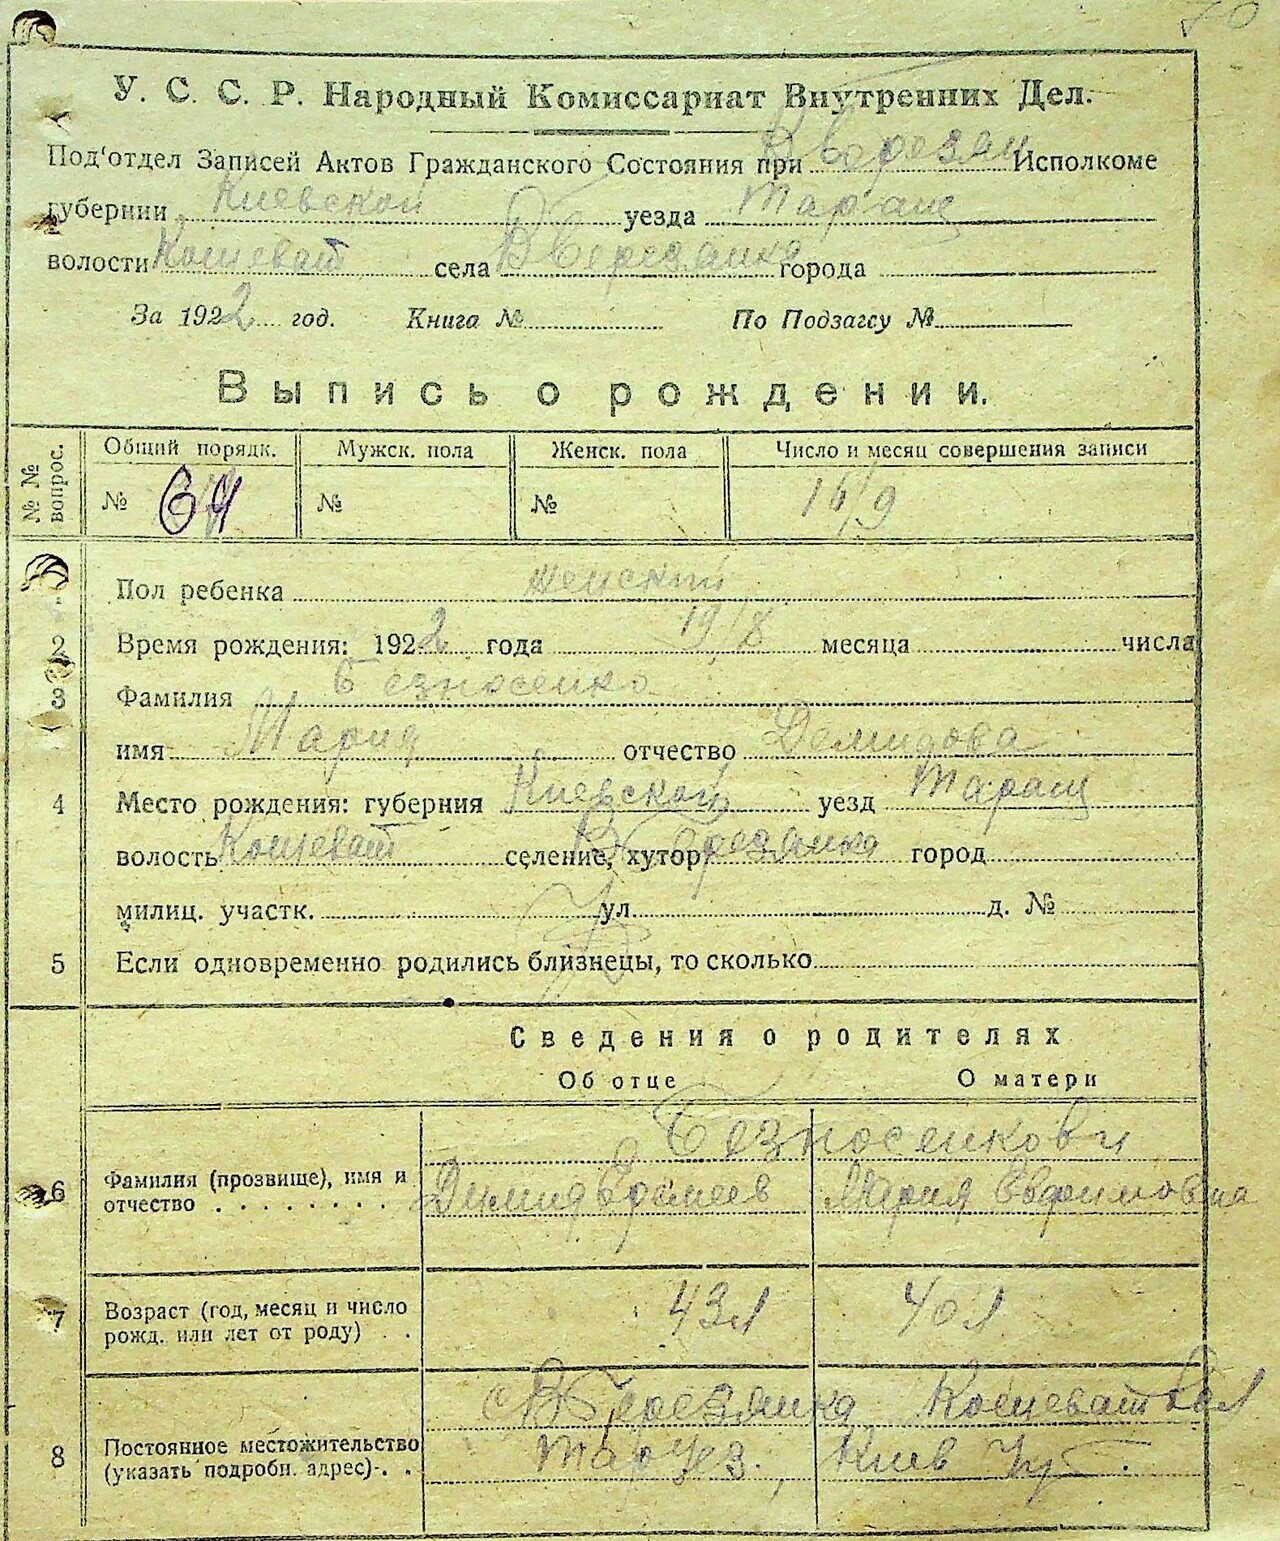 70
У. С. С. Р. Народный Комиссариат Внутренних Дел.
Под'отдел Записей Актов Гражданского Состояния при В Березян Исполкоме
губернии Киевской уезда Таращ
волости Кошеват села В Березанка города
За 1922 год. Книга № По Подзагсу №
Выпись о рождении.
№ № вопрос. Общий порядк. Мужск. пола Женск. пола Число и месяц совершения записи
№ 64 № № 14/9
Пол ребенка женский
2 Время рождения: 1922 года 19/8 месяца числа
3 Фамилия Безносенко
имя Мария отчество Демидова
4 Место рождения: губерния Киевской уезд Таращ
волость Кошеват селение, хутор В Березанка город
милиц. участк. ул. д. №
5 Если одновременно родились близнецы, то сколько
Сведения о родителях
Об отце О матери
Безносенкови
6 Фамилия (прозвище), имя и отчество Димид Мария Евфимовна
7 Возраст (год, месяц и число рожд. или лет от роду) 43 л 40 л
8 Постоянное местожительство (указать подробн. адрес) с В Березянка Кошеват Вол
Тар Уез. Киев Губ.